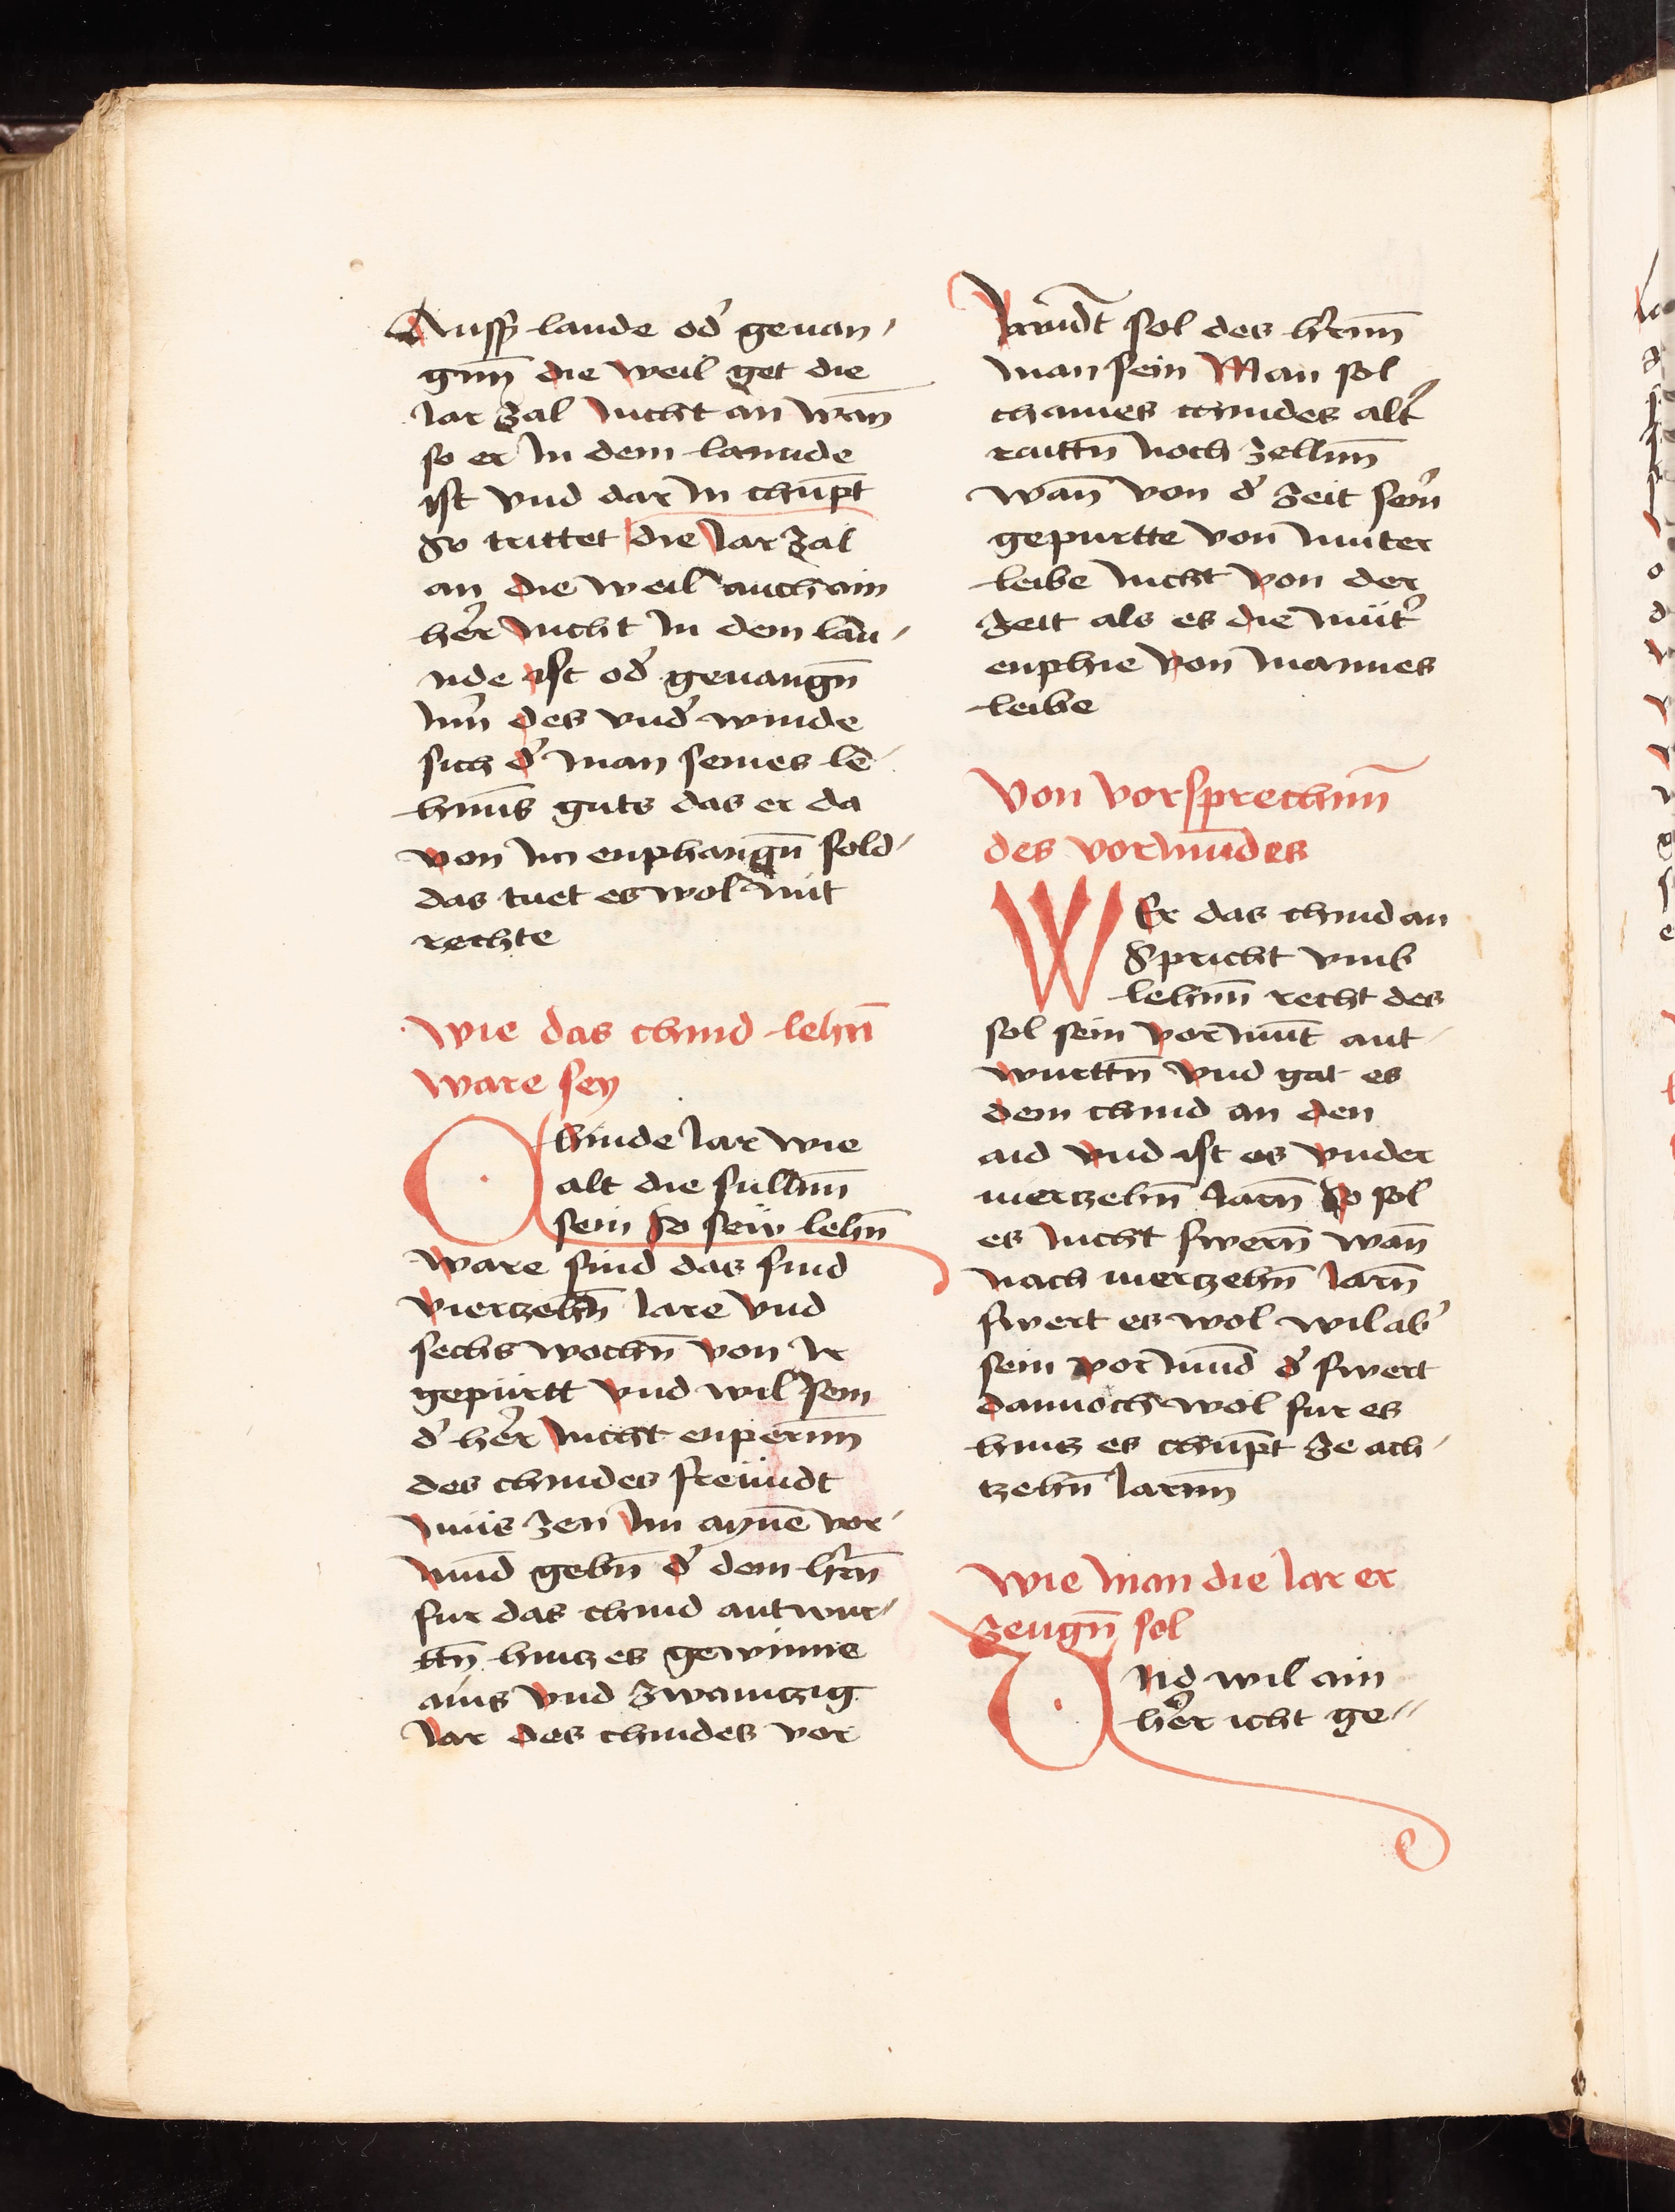 Ausz lande od̕ geuan-
gn̄n die weil get die
Jar zal nicht an wan̄
so er In dem lannde
ist vnd dar In chūpt
So trittet die Jar zal
an die weil auch ain
her̕ nicht In dem lan-
nde ist od̕ geuangn̄
Nim̕ des vnd̕ winde
sich d̕ man seines le-
henn̄s guts das er da
von Im enphangn̄ sold
das tuet es wol mit
rechte
Wie das chind lehn̄
ware sey
Chinde Jar wie
alt die sulln̄n
sein so seiv lehn̄
ware sind das sind
vierzehn̄ Jare vnd
sechs wochn̄ von Ir
gepürtt vnd wil sein
d̕ her̕ nicht enpern̄n
des chindes freündt
müs zen Im aynē vor-
mūnd gebn̄ d̕ dem hrn̄
fur das chind antwur-
ttn̄ hintz es gewinne
ains vnd zwaintzig
Jar des chindes vor
mūndt sol des hern̄n
man sein Man sol
chaines chindes alt̕
raittn̄ noch zelln̄n
wan̄ von d̕ zeit sein̕
gepurtte von muter
leibe nicht von der
zeit als es die müt̕
enphie von mannes
leibe
Von vorsprechn̄n
des vormūndes
WEr das chind an
Spricht vmb
lehn̄n recht des
sol sein vormūnt ant-
wurttn̄ vnd gat es
dem chind an den
aid vnd ist es vnder
uiertzehn̄ Jarn̄ So sol
es nicht swern̄ wan̄
nach uiertzehn̄ Jarn̄
swert es wol wil ab̕
sein vormūnd d̕ swert
dannoch wol fur es
hintz es chūpt ze ach-
tzehn̄ Jarn̄n
Wie man die Jar er
zeugn̄ sol
Vnd wil ain
her̕ icht ge-